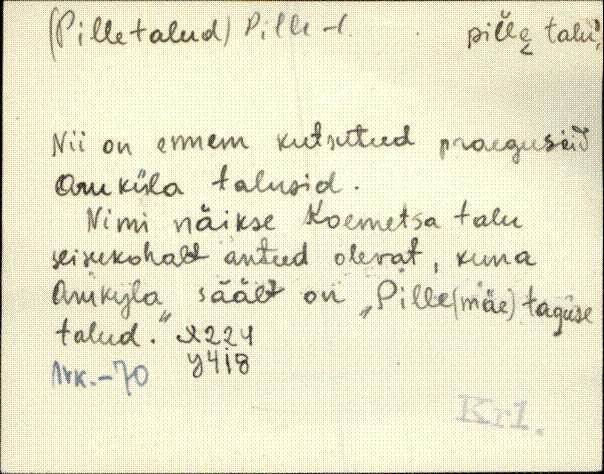 (Pilletalud) Pille -l. pille talu'
Nii on ennem kutsutud praeguseid
Aruküla talusid.
Nimi näikse Koemetsa talu
seisukohalt antud olevat, kuna
Aruküla säält on „Pille(mäe) taguse
talud." X224
Y418
Irk.-70
Krl.